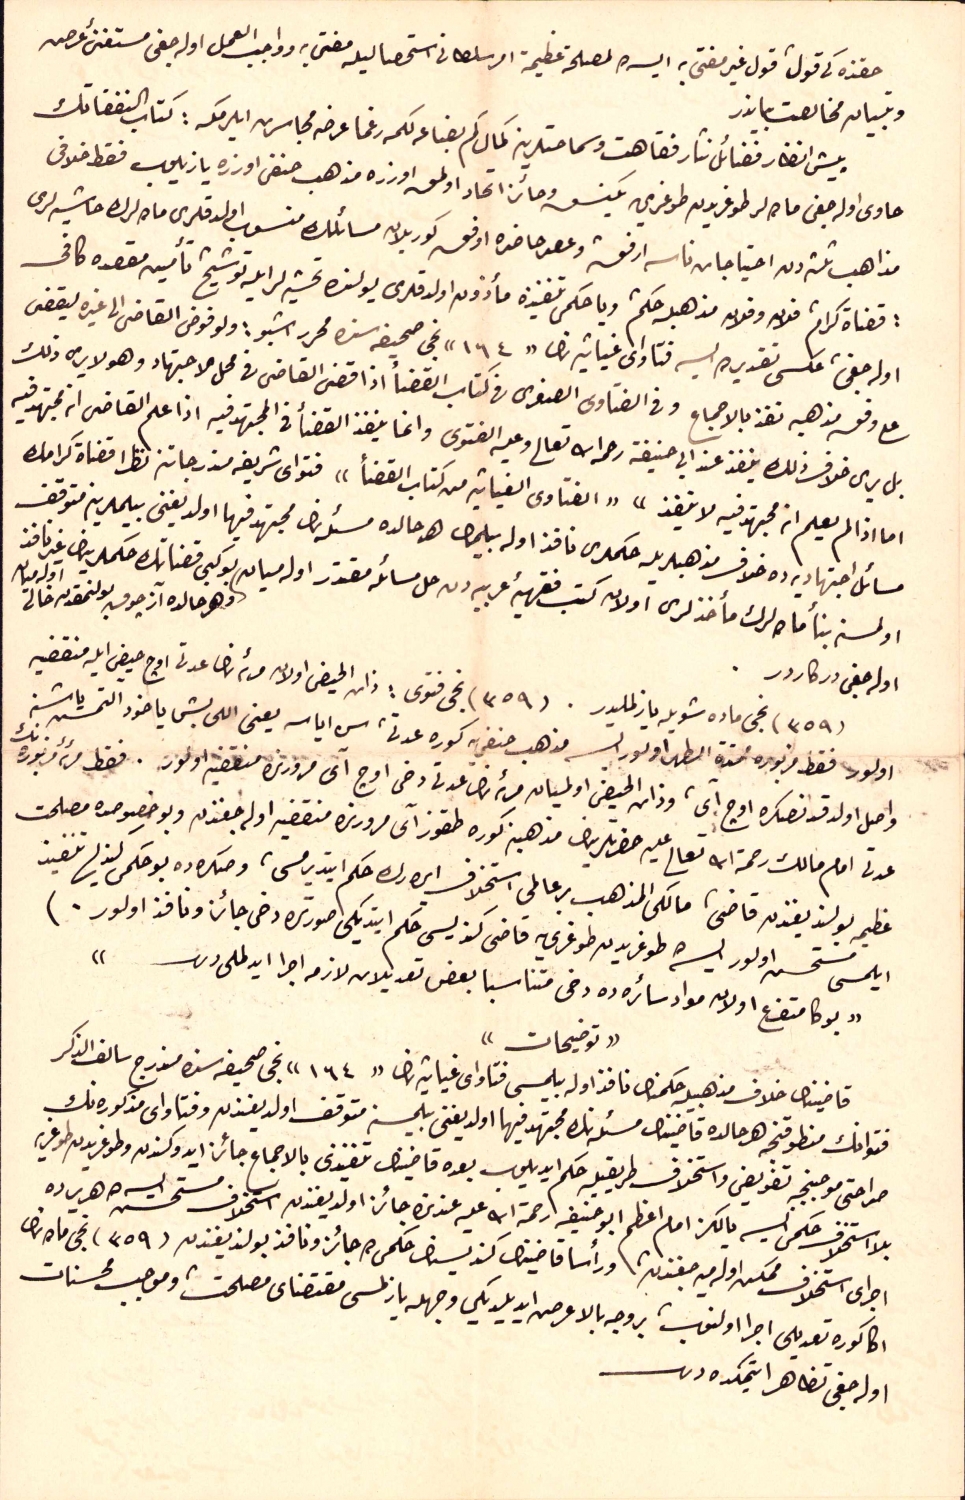 حقنده كی قول، قول غیر مفتی به ایسه ده لمصلحة عظیمة امر سلطانی استحصالیله مفتی به و واجب العمل اوله جغی مستغنئ عرض
وتبیان مخالصت بیاندر
پیش انظار فضائل نثار فقاهت وسماحتلرینه كمال كم بضاعه لكمه رغما عرضه مجاسرت ایلرمكه : كتاب النفقاتك
حاوی اوله جغی ماده لر طوغریدن طوغری یكنسق وحائز اتحاد اولمق اوزره مذهب حنفی اوزره یازیلوب فقط خلافی
مذاهب ثلثه دن احتیاجات ناسه ارفق و عصر حاضره اوفق كوریلان مسائلك منسوب اولدقلری ماده لرك حاشیه لری
: قضاة كرام فلان وفلان مذهبله حكم ویا حكمی تنفیذه مأذون اولدقلری یولنده تحشیه لر ایله توشیح تأمین مقصده كافی
اوله جغی، عكسی تقدیرده ایسه فتاوای غیاثیه نك «١٦٤» نجی صحیفه سنده محرر اشبو : ولو فوض القاضی الی غیره لیقضی
علی وفق مذهبه نفذ بالاجماع وفی الفتاوی الصغری فی كتاب القضأ اذا قضی القاضی فی محل الاجتهاد وهو لا یری ذلك
بل یری خلاف ذلك ینفذ عند ابی حنیفة رحمه الله تعالی وعلیه الفتوی وانما ینفذ القضأ فی المجتهد فیه اذا علم القاضی انه مجتهد فیه
اما اذا لم یعلم انه مجتهد فیه لا ینفذ » « الفتاوی الغیاثیه من كتاب القضأ » فتوای شریفه مندرجاتنه نظرا قضاة كرامك
مسائل اجتهادیه ده خلاف مذهبلریله حكملری نافذ اوله بیلمك هر حالده مسئله نك مجتهد فیها اولدیغنی بیلملرینه متوقف
اولمسنه بنأ ماده لرك مأخذلری اولان كتب فقهیۀ عربیه دن حل مسائله مقتدر اوله میان بوكبی قضاتك حكملرینك غیر نافذ
وهر حالده آز چوق بولنمقدن خالی اوله میان
اوله جغی دركاردر .
(٣٥٩) نجی ماده شویله یازلملیدر . (٣٥٩) نجی فتوی : ذات الحیض اولان مرئه نك عدتی اوج حیض ایله منقضیه
اولور فقط مزبوره ممتدة الطهر اولور ایسه مذهب حنفی یه كوره عدتی سن ایاسه یعنی اللی بش یاخود التمش یاشنه
واصل اولدقدنصكره اوج آی، وذات الحیض اولمیان مرئه نك عدتی دخی اوج آی مرورنده منقضیه اولور . فقط مرئۀ مزبوره نك
عدتی امام مالك رحمة الله تعالی علیه حضرتلرینك مذهبنه كوره طقوز آی مرورنده منقضیه اوله جغندن وبو خصوصده مصلحت
عظیمه بولندیغندن قاضی، مالكی المذهب بر عالمی استخلاف ایدرك حكم ایتدیرمسی، وصكره ده بو حكمی كندیسی تنفیذ
ایلمسی مستحسن اولور ایسه ده طوغریدن طوغری یه قاضی كندیسی حكم ایتدیكی صورتده دخی جائز ونافذ اولور . )
« بوكا متفرع اولان مواد سائره ده دخی متناسبا بعض تعدیلات لازمه اجرا ایدلملی در »
« توضیحات »
قاضینك خلاف مذهبیله حكمنك نافذ اوله بیلمسی فتاوای غیاثیه نك «١٦٤» نجی صحیفه سنده مندرج سالف الذكر
فتوانك منطوقنجه هر حالده قاضینك مسئله نك مجتهد فیها اولدیغنی بیلمسنه متوقف اولدیغندن وفتاوای مذكوره نك
صراحتی موجبنجه تفویض واستخلاف طریقیله حكم ایدیلوب بعده قاضینك تنفیذی بالاجماع جائز ایدوكندن وطوغریدن طوغری یه
بلا استخلاف حكمی ایسه یالكز امام اعظم ابو حنیفه رحمة الله علیه عندنده جائز اولدیغندن استخلاف مستحسن ایسه ده هر یرده
اجرای استخلاف ممكن اوله میه جغندن، ورأسا قاضینك كندیسنك حكمی ده جائز ونافذ بولندیغندن (٣٥٩) نجی ماده نك
اكا كوره تعدیلی اجرا اولنوب، بر وجه بالا عرض ایدیلدیكی وجهله یازلمسی مقتضای مصلحت، وموجب محسنات
اوله جغی تظاهر ایتمكده در